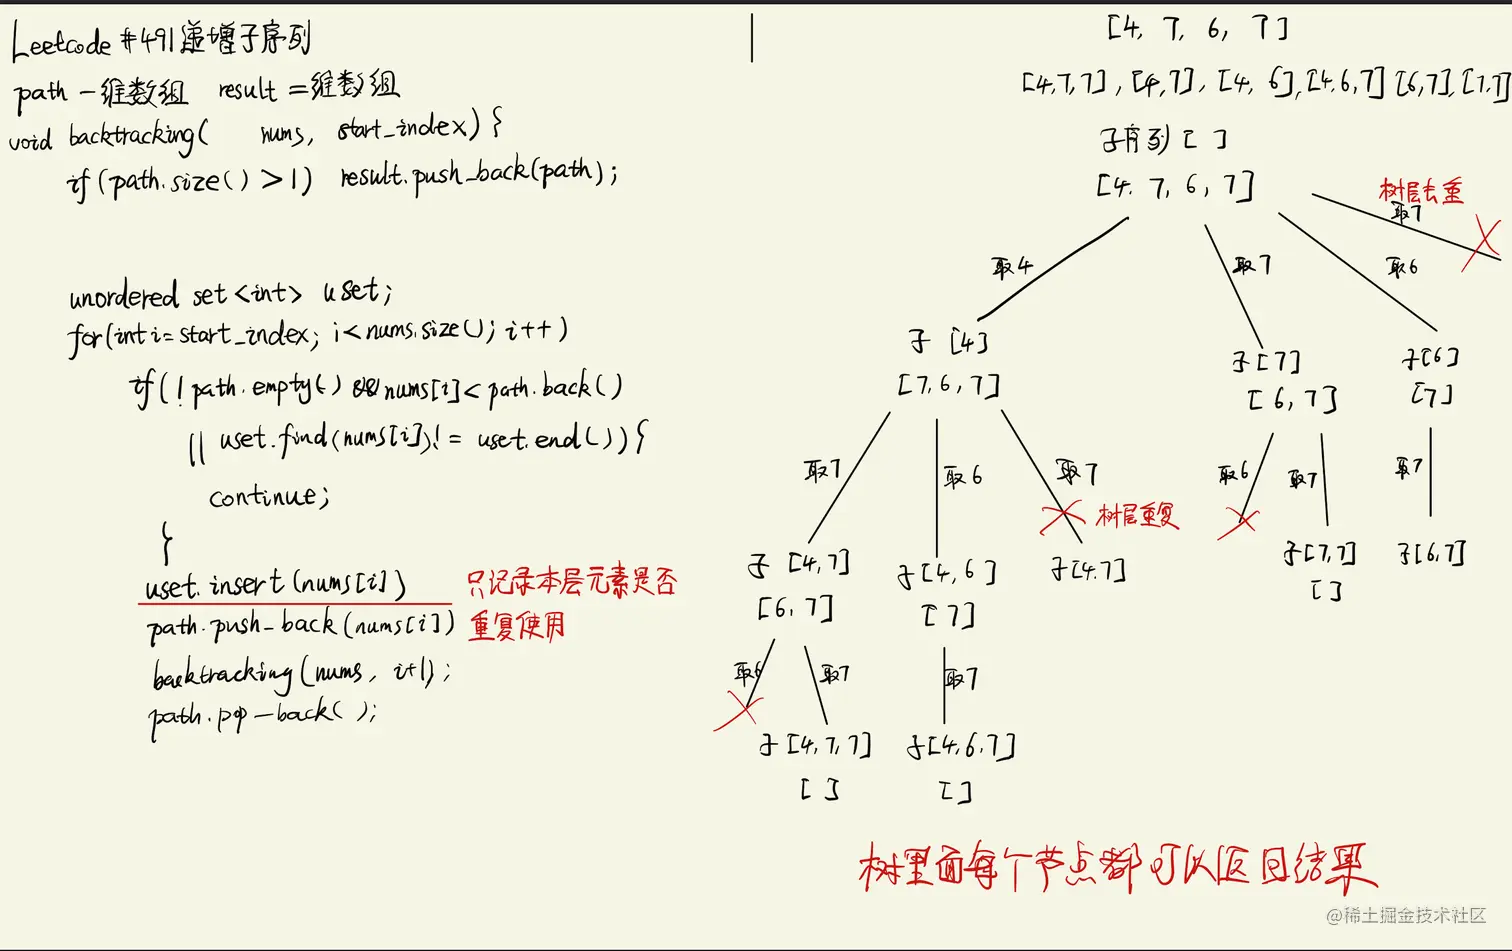 Leetcode #491递增子序列
path 一维数组 result 二维数组
void backtracking( nums, start_index) {
if(path.size() >1) result.push_back(path);
unordered set<int> uset;
for(int i=start_index; i<nums.size(); i++)
if(!path.empty() && nums[i]<path.back()
|| uset.find(nums[i])!= uset.end()) {
continue;
}
uset.insert(nums[i])
只记录本层元素是否
重复使用
path.push_back(nums[i])
backtracking(nums, i+1);
path.pop_back();
[4, 7, 6, 7]
[4,7,7], [4,7], [4, 6], [4,6,7] [6,7], [7,7]
子序列 [ ]
[4. 7, 6, 7]
树层去重
取7
取4
取7
取6
子 [4]
[7,6,7]
子[7]
[6,7]
子[6]
[7]
取7
取6
取7
树层重复
取6
取7
取7
子 [4,7]
[6,7]
子[4,6]
[7]
子[4.7]
子[7,7]
[ ]
子[6,7]
取6
取7
取7
子[4,7,7]
[ ]
子[4,6.7]
[ ]
树里面每个节点都可以返回结果
@稀土掘金技术社区